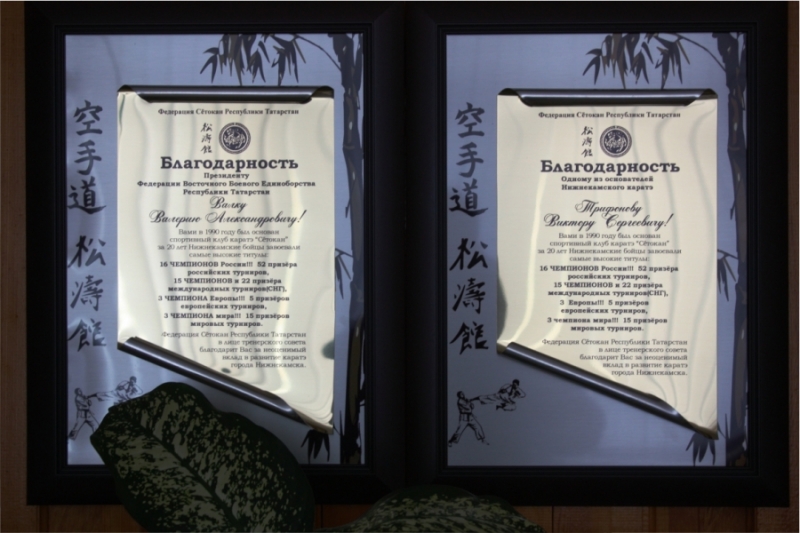 空手道 松濤館
Федерация Сётокан Республики Татарстан
松濤館
Благодарность
Президенту
Федерации Восточного Боевого Единоборства
Республики Татарстан
Валку
Валерию Александровичу!
Вами в 1990 году был основан
спортивный клуб каратэ "Сётокан"
за 20 лет Нижнекамские бойцы завоевали
самые высокие титулы:
16 ЧЕМПИОНОВ России!!! 52 призёра
российских турниров,
15 ЧЕМПИОНОВ и 22 призёра
международных турниров(СНГ),
3 ЧЕМПИОНА Европы!!! 5 призёров
европейских турниров,
3 ЧЕМПИОНА мира!!! 15 призёров
мировых турниров.
Федерация Сётокан Республики Татарстан
в лице тренерского совета
благодарит Вас за неоценимый
вклад в развитие каратэ
города Нижнекамска.
空手道 松濤館
Федерация Сётокан Республики Татарстан
松濤館
Благодарность
Одному из основателей
Нижнекамского каратэ
Трифонову
Виктору Сергеевичу!
Вами в 1990 году был основан
спортивный клуб каратэ "Сётокан"
за 20 лет Нижнекамские бойцы завоевали
самые высокие титулы:
16 ЧЕМПИОНОВ России!!! 52 призёра
российских турниров,
15 ЧЕМПИОНОВ и 22 призёра
международных турниров(СНГ),
3 Европы!!! 5 призёров
европейских турниров,
3 чемпиона мира!!! 15 призёров
мировых турниров.
Федерация Сётокан Республики Татарстан
в лице тренерского совета
благодарит Вас за неоценимый
вклад в развитие каратэ
города Нижнекамска.